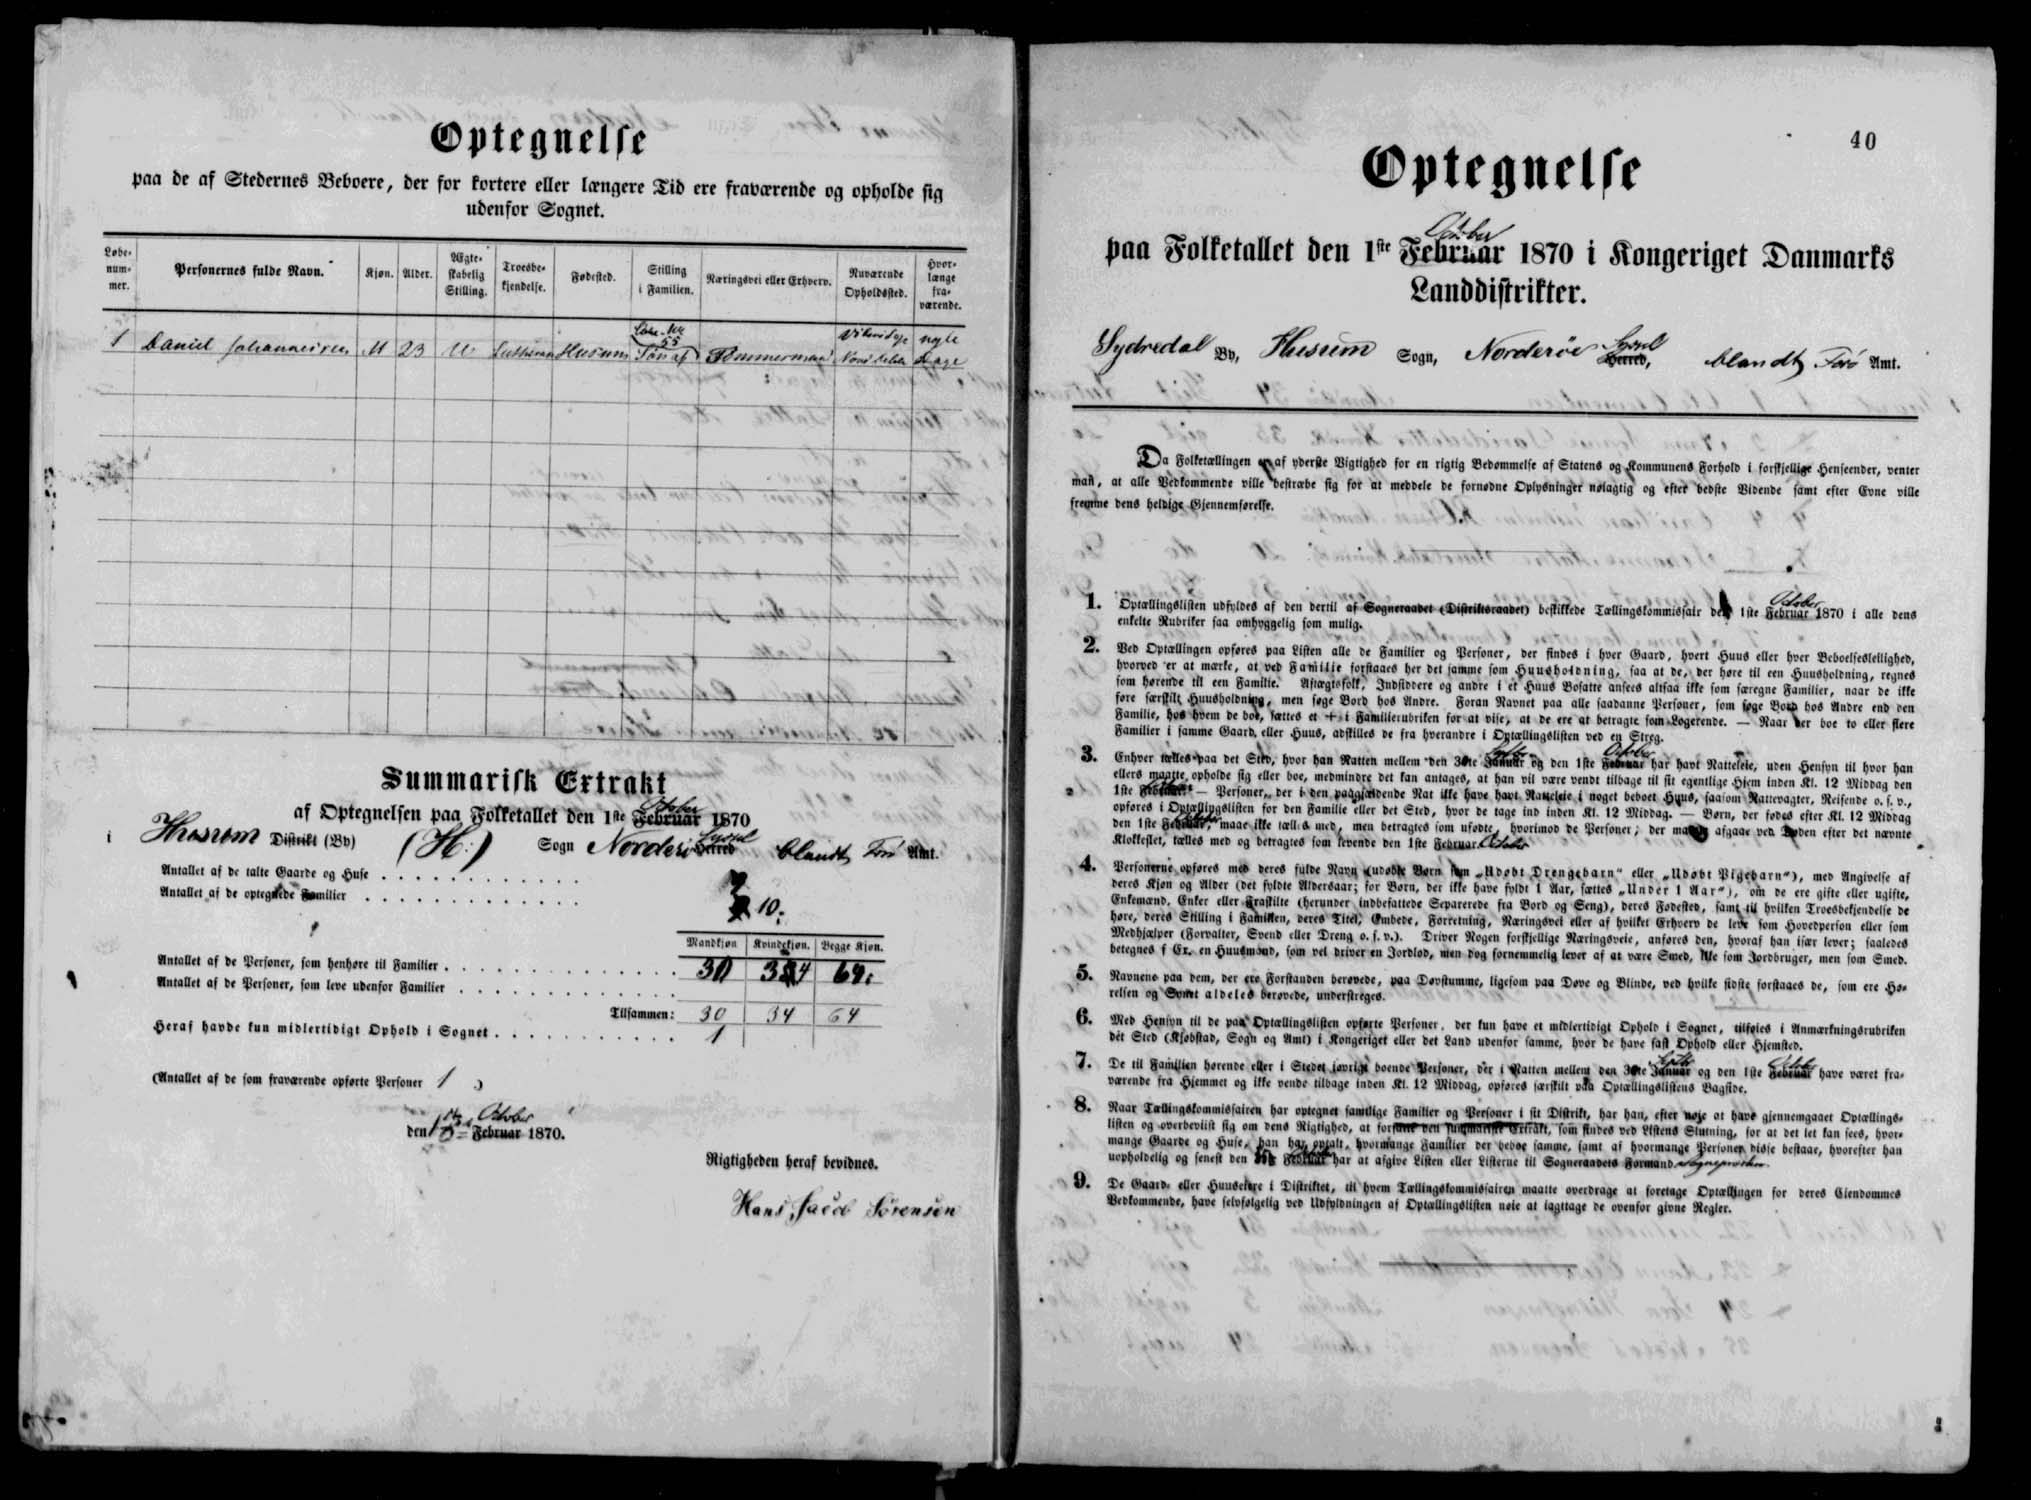 Optegnelse
paa de af Stedernes Beboere, der for kortere eller længere Tid ere fraværende og opholde sig
udenfor Sognet.
Løbe-
num-
mer.
Personernes fulde Navn.
Kjøn.
Alder.
Ægte-
skabelig
Stilling.
Troesbe-
kjendelse.
Fødested.
Stilling
i Familien.
Næringsvei eller Erhverv.
Nuværende
Opholdssted.
Hvor-
længe
fra-
værende.
1 Daniel Johannesen M 23 U Luthersk Husum Søn af Tømmermand nogle Dage
55
Summarisk Extrakt
af Optegnelsen paa Folketallet den 1ste Februar October 1870
i Husum Distrikt (By) (H:) Sogn Norderø Herred Syssel blandt Færø Amt.
Antallet af de talte Gaarde og Huse 7
Antallet af de optegnede Familier 10.
Mandkjøn Kvindekjøn. Begge Kjøn.
Antallet af de Personer, som henhøre til Familier 30 34 64.
Antallet af de Personer, som leve udenfor Familier
Tilsammen: 30 34 64
Heraf havde kun midlertidigt Ophold i Sognet 1
(Antallet af de som fraværende opførte Personer 1 )
October
den Februar 1870.
Rigtigheden heraf bevidnes.
Hans Jacob Sørensen
40
Optegnelse
October
paa Folketallet den 1ste Februar 1870 i Kongeriget Danmarks
Landdistrikter.
Sydredal By, Husum Sogn, Norderøe Syssel Herred, blandt Færø Amt.
Da Folketællingen er af yderste Vigtighed for en rigtig Bedømmelse af Statens og Kommunens Forhold i forskjellige Henseender, venter
man, at alle Vedkommende ville bestræbe sig for at meddele de fornødne Oplysninger nøiagtig og efter bedste Vidende samt efter Evne ville
fremme dens heldige Gjennemførelse.
1. Optællingslisten udfyldes af den dertil af Sogneraadet (Distriktsraadet) beskikkede Tællingskommissair den 1ste Februar October 1870 i alle dens
enkelte Rubriker saa omhyggelig som mulig.
2. Ved Optællingen opføres paa Listen alle de Familier og Personer, der findes i hver Gaard, hvert Huus eller hver Beboelsesleilighed,
hvorved er at mærke, at ved Familie forstaaes her det samme som Huusholdning, saa at de, der høre til een Huusholdning, regnes
som hørende til een Familie. Aftægtsfolk, Indsiddere og andre i et Huus Bosatte ansees altsaa ikke som særegne Familier, naar de ikke
føre særskilt Huusholdning, men søge Bord hos Andre. Foran Navnet paa alle saadanne Personer, som søge Bord hos Andre end den
Familie, hos hvem de boe, sættes et + i Familierubriken for at vise, at de ere at betragte som Logerende. — Naar der boe to eller flere
Familier i samme Gaard, eller Huus, adskilles de fra hverandre i Optællingslisten ved en Streg.
3. Enhver tælles paa det Sted, hvor han Natten mellem den 30te Januar Septbr og den 1ste Februar October har havt Natteleie, uden Hensyn til hvor han
ellers maatte opholde sig eller boe, medmindre det kan antages, at han vil være vendt tilbage til sit egentlige Hjem inden Kl. 12 Middag den
1ste Februar. — Personer, der i den paagjældende Nat ikke have havt Natteleie i noget beboet Huus, saasom Nattevagter, Reisende o. s. v.,
opføres i Optællingslisten for den Familie eller det Sted, hvor de tage ind inden Kl. 12 Middag. — Børn, der fødes efter Kl. 12 Middag
den 1ste Februar, maae ikke tælles med, men betragtes som ufødte, hvorimod de Personer, der maatte afgaae ved Døden efter det nævnte
Klokkeslet, tælles med og betragtes som levende den 1ste Februar. October
4. Personerne opføres med deres fulde Navn (udøbte Børn som „Udøbt Drengebarn“ eller „Udøbt Pigebarn“), med Angivelse af
deres Kjøn og Alder (det fyldte Aldersaar; for Børn, der ikke have fyldt 1 Aar, sættes „Under 1 Aar“), om de ere gifte eller ugifte,
Enkemænd, Enker eller Fraskilte (herunder indbefattede Separerede fra Bord og Seng), deres Fødested, samt til hvilken Troesbekjendelse de
høre, deres Stilling i Familien, deres Titel, Embede, Forretning, Næringsvei eller af hvilket Erhverv de leve som Hovedperson eller som
Medhjælper (Forvalter, Svend eller Dreng o. s. v.). Driver Nogen forskjellige Næringsveie, anføres den, hvoraf han især lever; saaledes
betegnes f Ex. en Huusmand, som vel driver en Jordlod, men dog fornemmelig lever af at være Smed, ikke som Jordbruger, men som Smed.
5. Navnene paa dem, der ere Forstanden berøvede, paa Døvstumme, ligesom paa Døve og Blinde, ved hvilke sidste forstaaes de, som ere Hø-
relsen og Synet aldeles berøvede, understreges.
6. Med Hensyn til de paa Optællingslisten opførte Personer, der kun have et midlertidigt Ophold i Sognet, tilføies i Anmærkningsrubriken
det Sted (Kjøbstad, Sogn og Amt) i Kongeriget eller det Land udenfor samme, hvor de have fast Ophold eller Hjemsted.
7. De til Familien hørende eller i Stedet iøvrigt boende Personer, der i Natten mellem den 30te Januar Septbr og den 1ste Februar October have været fra-
værende fra Hjemmet og ikke vende tilbage inden Kl. 12 Middag, opføres særskilt paa Optællingslistens Bagside.
8. Naar Tællingskommissairen har optegnet samtlige Familier og Personer i sit Distrikt, har han, efter nøje at have gjennemgaaet Optællings-
listen og overbeviist sig om dens Rigtighed, at forfatte den summariske Extrakt, som findes ved Listens Slutning, for at det let kan sees, hvor-
mange Gaarde og Huse, han har optalt, hvormange Familier der beboe samme, samt af hvormange Personer disse bestaae, hvorefter han
uopholdelig og senest den Februar har at afgive Listen eller Listerne til Sogneraadets Formand Sognepræsten.
9. De Gaard- eller Huuseiere i Distriktet, til hvem Tællingskommissairen maatte overdrage at foretage Optællingen for deres Eiendommes
Vedkommende, have selvfølgelig ved Udfyldningen af Optællingslisten nøie at iagttage de ovenfor givne Regler.